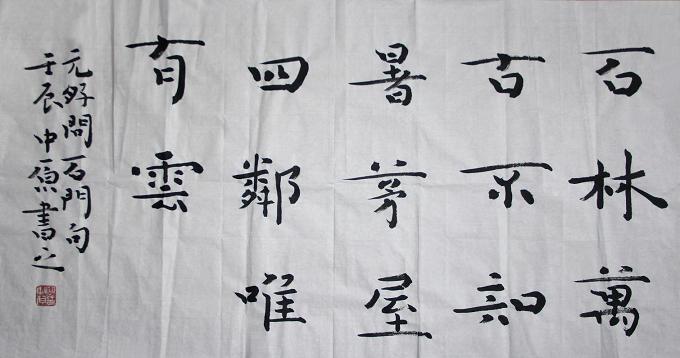 石林萬
古不知
暑茅屋
四鄰唯
有雲
元好問石門句
壬辰中原書之